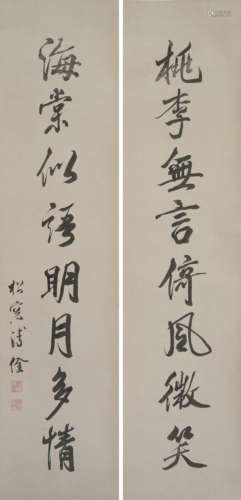 桃李無言倚風微笑
海棠似語明月多情
松窗溥佺